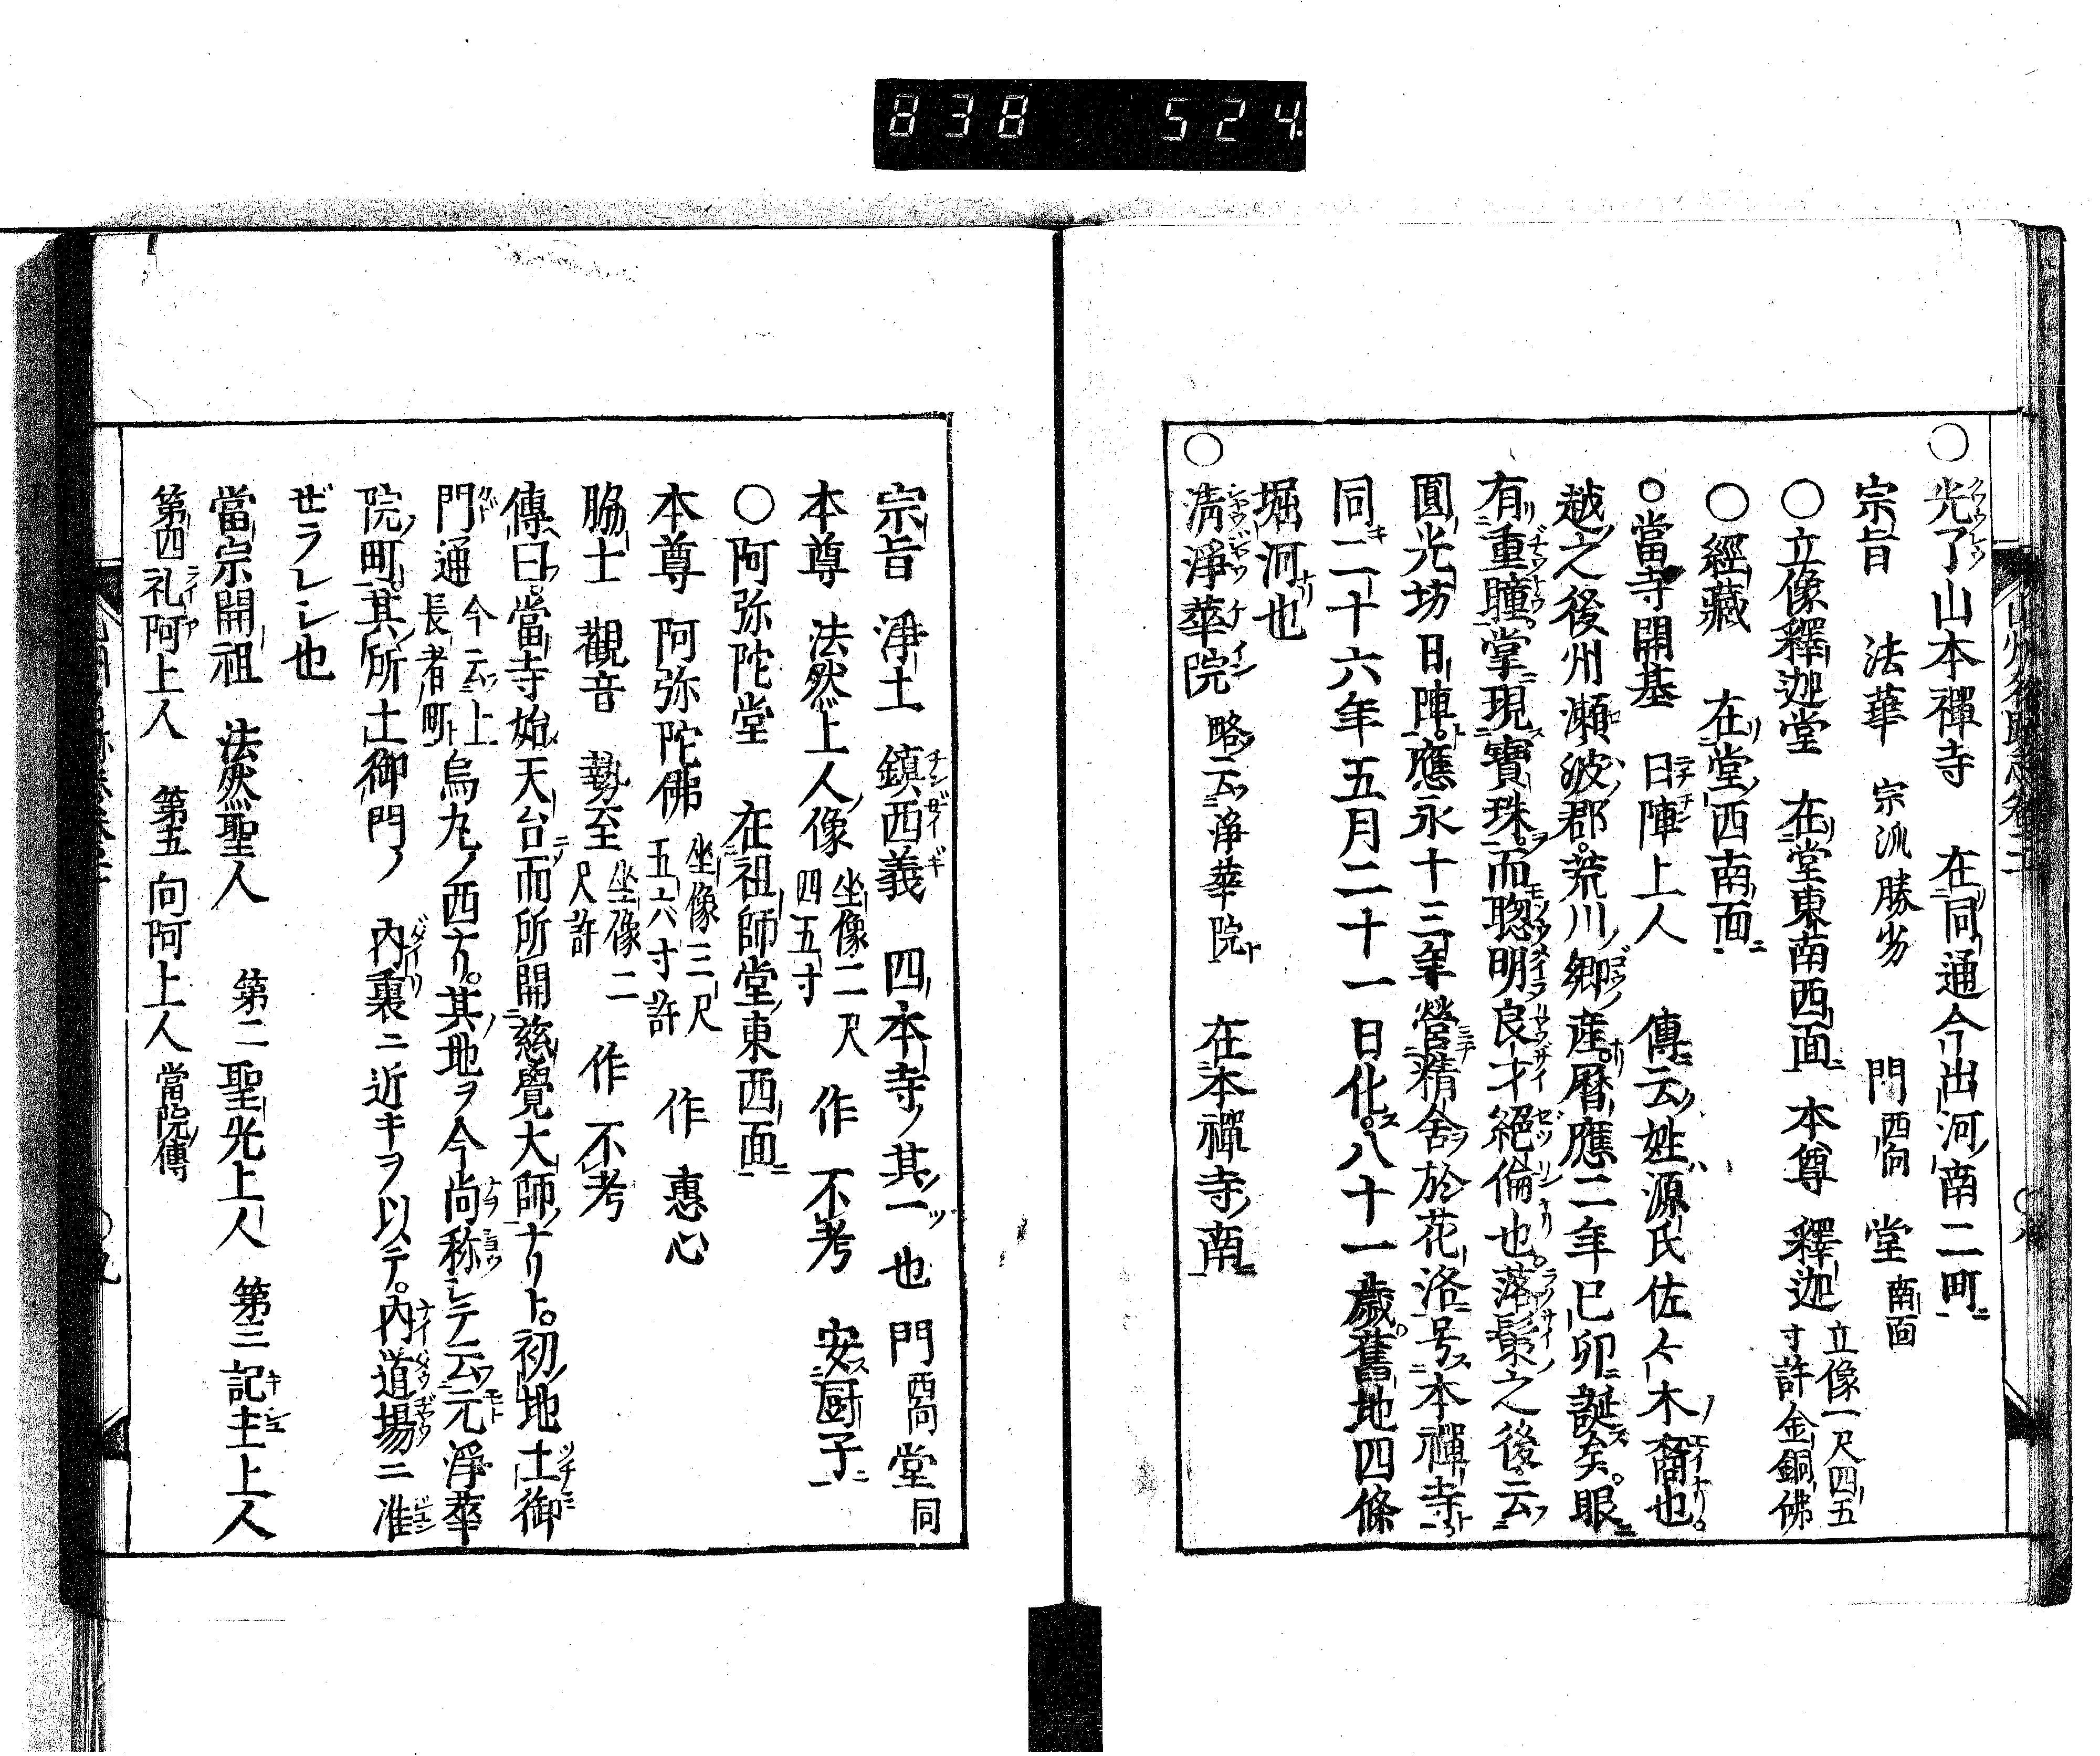 838 524
○光了山本禪寺 在同通今出河南二町
宗旨 法華 宗派勝劣 門西向 堂南面
○立像釋迦堂 在堂東南西面 本尊 釋迦立像一尺四五寸許金銅佛
○經藏 在堂西南面
○當寺開基 日陣上人 傳云姓源氏佐々木裔也
越之後州瀬波郡荒川郷産暦應二年己卯誕矣眼
有重瞳掌現寶珠而聡明良才絕倫也落髪之後云
圓光坊日陣應永十三年營精舍於花洛号本禪寺
同二十六年五月二十一日化八十一歳舊地四條
堀河也
○清淨華院 略云淨華院 在本禪寺南
宗旨 淨土 鎮西義 四本寺ノ其一也 門西向 堂同
本尊 法然上人像坐像二尺四五寸 作 不考 安厨子
○阿弥陀堂 在祖師堂東西面
本尊 阿弥陀佛坐像三尺五六寸許 作 惠心
脇士 觀音 勢至坐像二尺許 作 不考
傳曰當寺始天台而所開慈覺大師ナリト初地土御
門通今云上長者町烏丸ノ西ナリ其地ヲ今尚称シテ云元淨華
院町其所土御門ノ 内裏ニ近キヲ以テ内道場ニ准
ゼラレシ也
當宗開祖 法然聖人 第二聖光上人 第三記主上人
第四礼阿上人 第五向阿上人當院傳